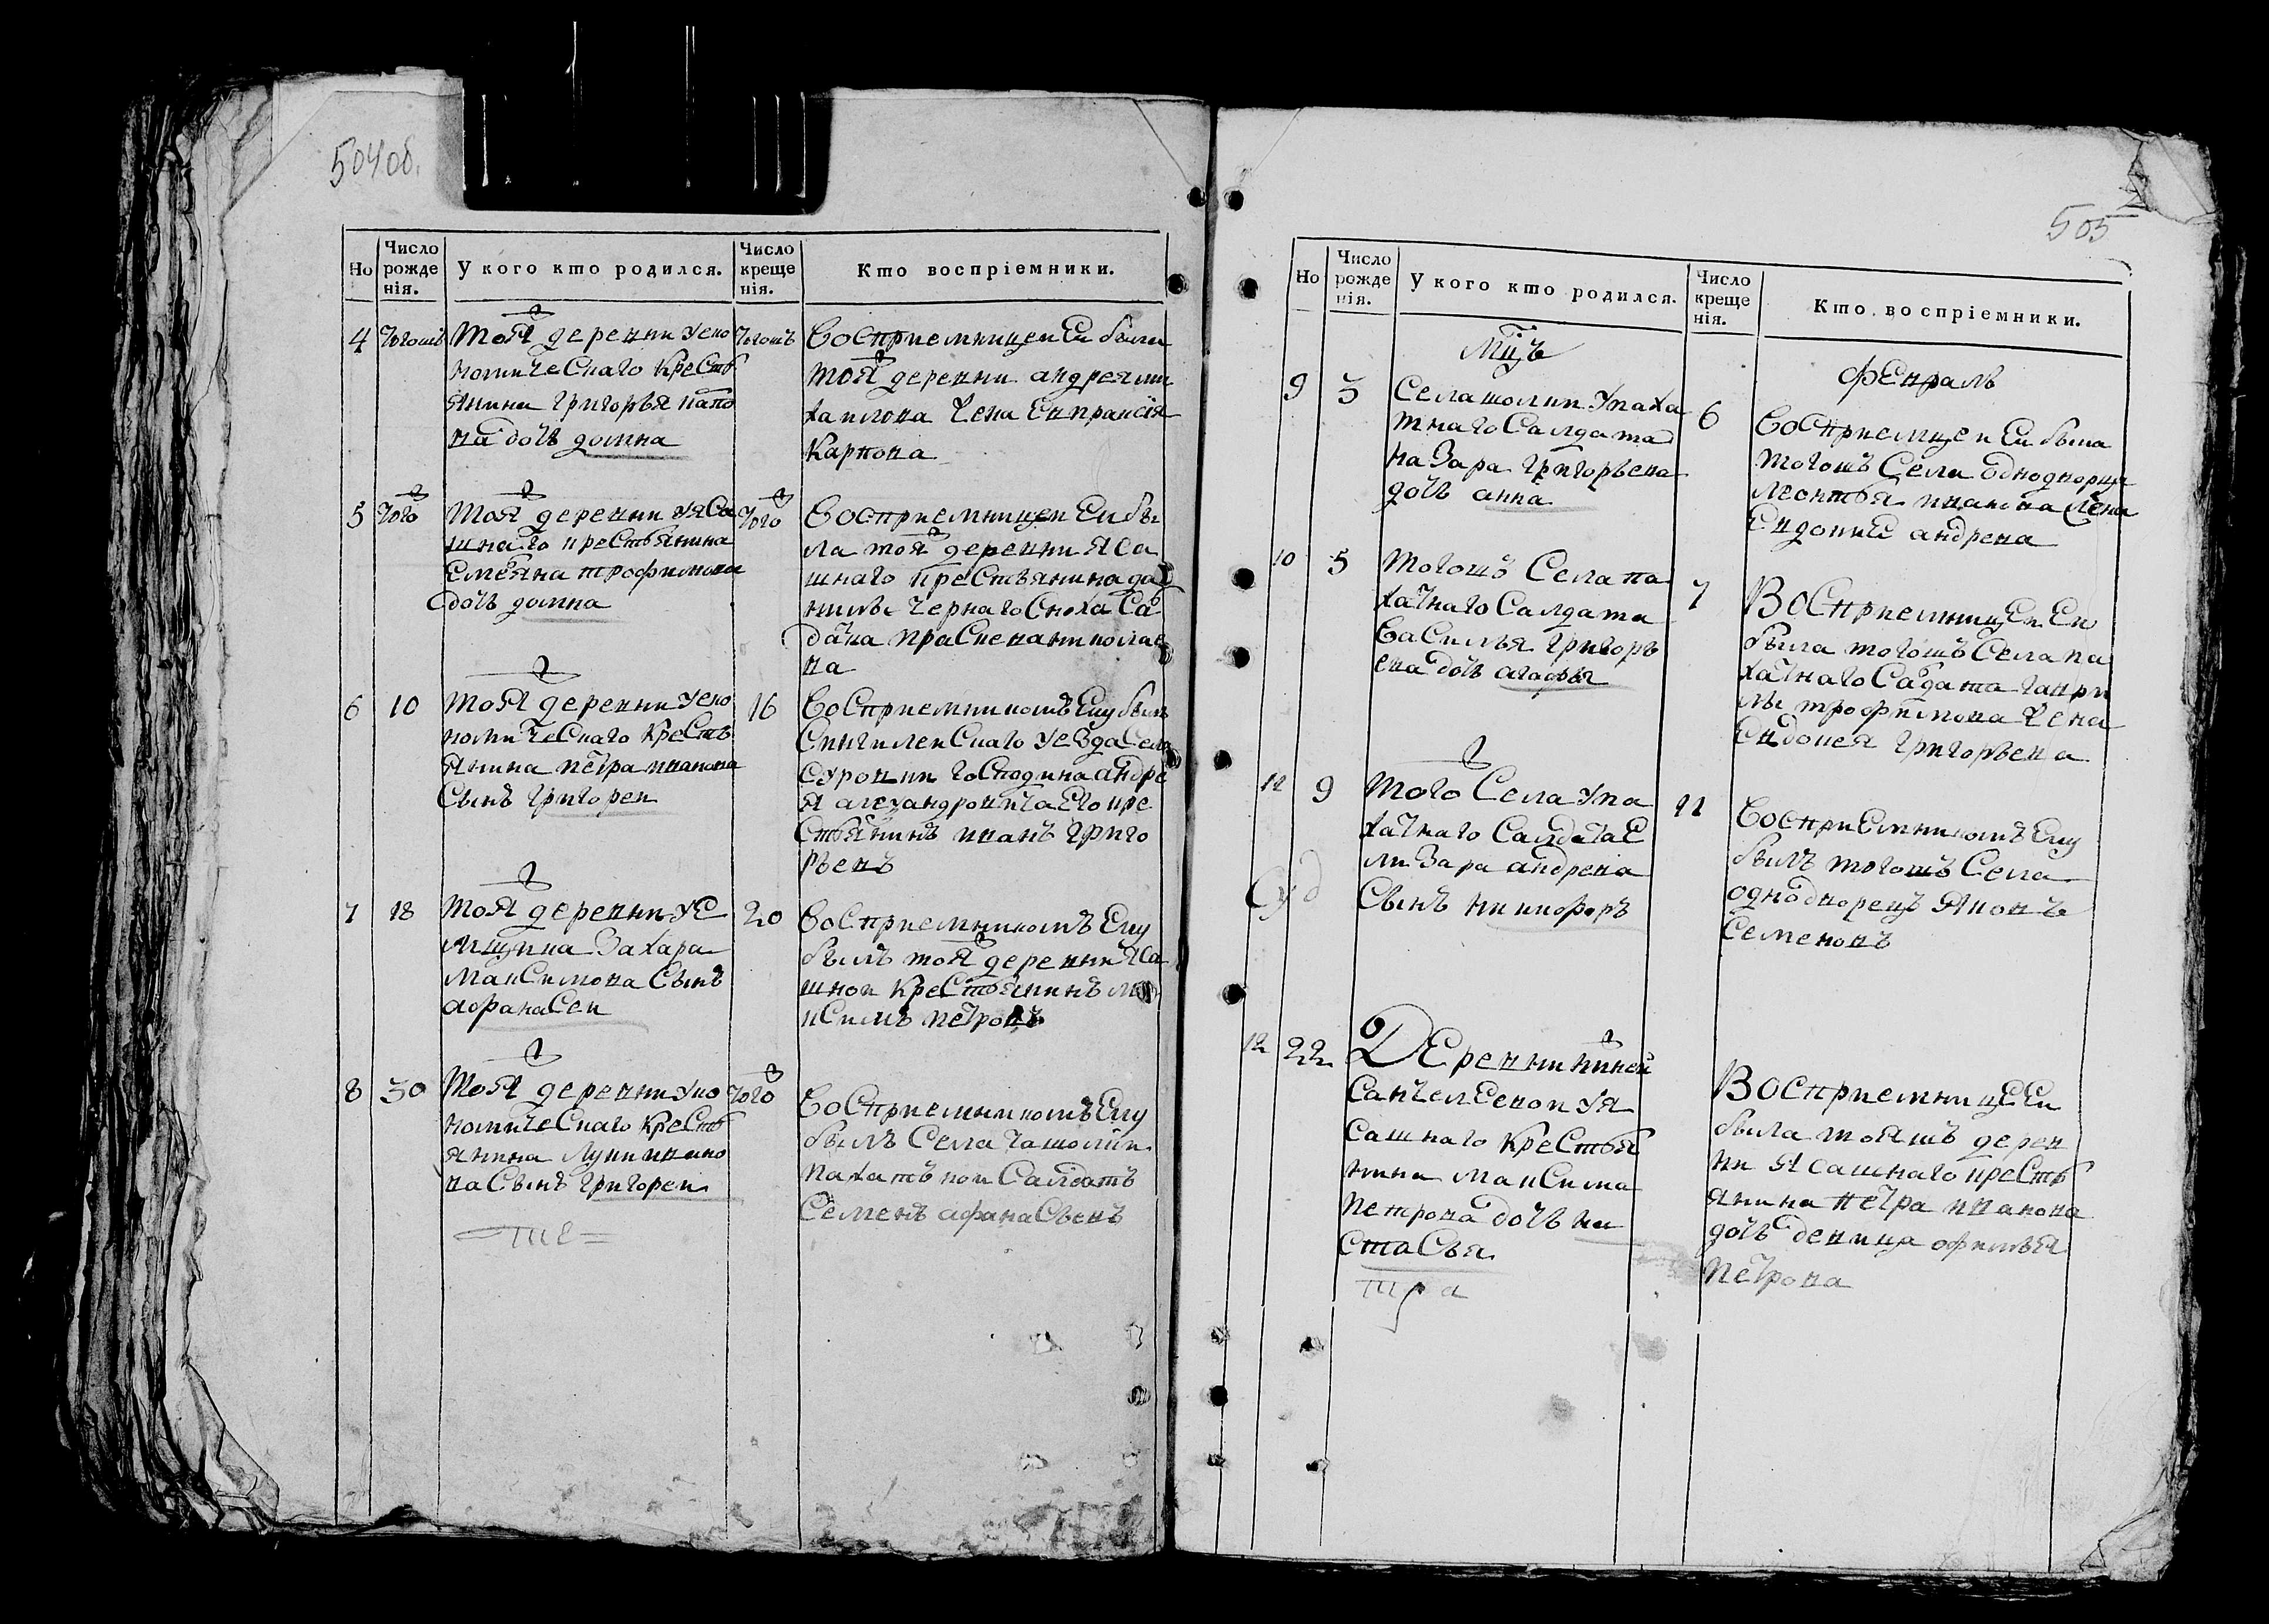 504об.
Но
Число рожденія.
У кого кто родился.
Число крещенія.
Кто воспріемники.
4
тогошъ
тоя деревни уеко
номическаго крестъ
янина григорья папо
ва дочь домна
тогошъ
восприемницеи Еи были
тоя деревни андрея ми
хаилова жена Евпраксія
карпова
5
того
тоя деревни уяса
шнаго крестьянина
Емельяна трофимова
дочь домна
того
восприемницеи Еи бы
ла тоя деревни яса
шнаго крестьянина да
нилы чернаго сноха
прасковья николае
ва
6
10
тоя деревни уеко
номическаго кресть
янина петра иванова
сынъ григореи
16
восприемникомъ Ему былъ
синбилеискаго уезда села
суровки господина андре
я александровича Его кре
стьянинъ иванъ григо
рьевъ
7
18
тоя деревни уе
мщика захара
максимова сынъ
афанасеи
20
восприемникомъ Ему
былъ тоя деревни яса
шнои крестьянинъ ма
ксимъ петровъ
8
30
тоя деревни уко
номическаго крестъ
янина луки ивано
ва сынъ григореи
того
восприемникомъ Ему
былъ села ташолки
пахатънои салдатъ
семенъ афанасьевъ
505
Но
Число рожденія.
У кого кто родился.
Число крещенія.
Кто воспріемники.
мцъ
февраль
9
3
села шолки упаха
тнаго салдата
назара григорьева
дочь анна
6
восприемнице и Еи была
тогошъ села однодворца
леонтья иванова жена
Евдокие андрева
10
5
тогошъ села па
хатнаго салдата
василья григорь
ева дочь агафья
7
восприемницеи Еи
была тогошъ села па
хатнаго садата гаври
лы трофимова жена
Евдокея григорьева
11
9
того села упа
хатнаго салдата Е
лизара андрева
сынъ никифоръ
11
восприемникомъ Ему
былъ тогошъ села
однодворецъ яковъ
семеновъ
12
22
Деревни
уя
сашнаго крестья
нина максима
петрова дочь на
стасья
восприемницеи Еи
была тояшъ дерев
ни ясашнаго кресть
янина петра иванова
дочь девица офимья
петрова